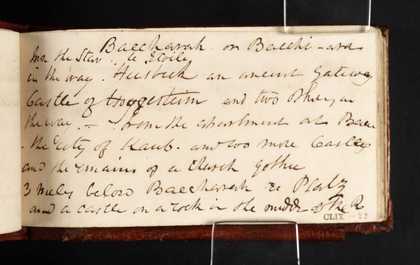 Baccharah or Bacchi-ara
Inn the Star
in the way. an ancient Gateway
Castle of and two
the way. — From the apartment at Bacc
the City of Kaub. and two more Castles
and the remains of a Church Gothic
3 miles below Baccharah is Pfalz
and a castle on a rock in the middle of the R
CLIX - 22